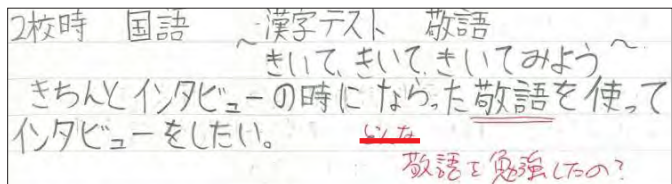 2校時 国語 漢字テスト 敬語
～きいて、きいて、きいてみよう～
きちんとインタビューの時にならった敬語を使って
インタビューをしたい。
どんな
敬語を勉強したの?